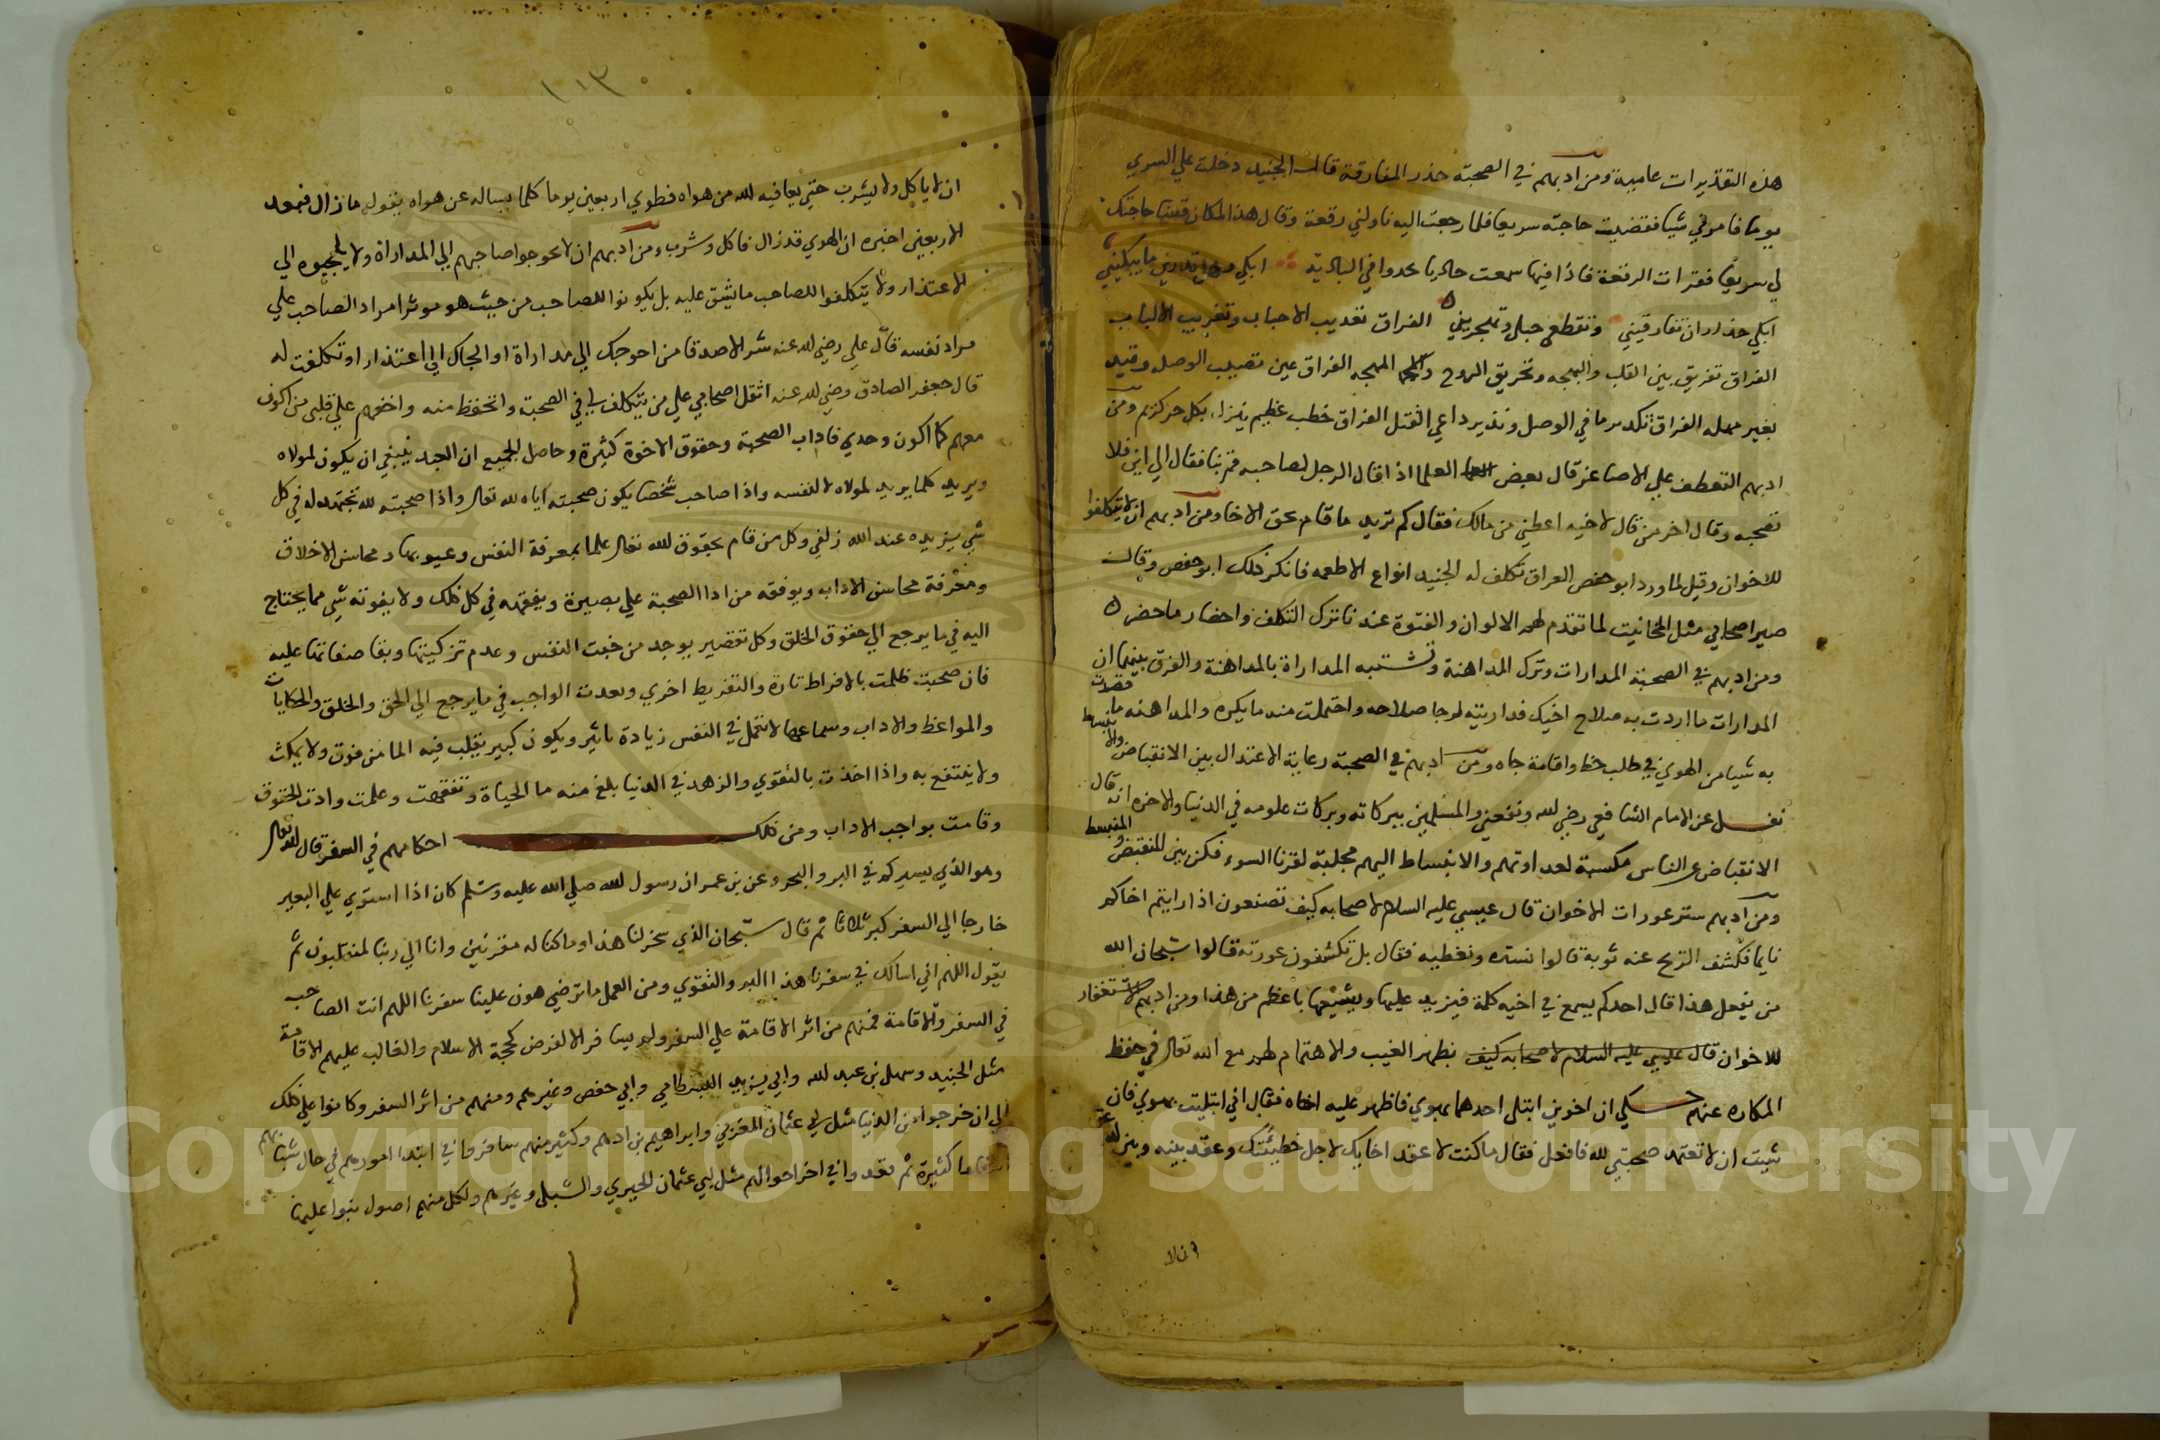 هذه التقديرات عاميية ومن ادبهم في الصحبة حذر المفارقة قال الجنيد دخلت علي السري
يوما فامرني شيا فقضيت حاجته سريعا فلما رجعت اليه ناولني رقعة وقال هذا لمكان قضيت حاجتك
لي سريعا فقرات الرقعة فاذا فيها سمعت حاديا يحدوا في البادية ابكي وهل تدرين ما يبكيني
ابكي حذار ان تفارقيني وتقطعي حبلي وتهجريني الفراق تعذيب الاحباب وتغريب الالباب
الفراق تفريق بين القلب والبهجه وتحريق الروح والمهجه الفراق عين تصيب الوصل وقيد
بغير مهله الفراق تكدير ما في الوصل ونذير داعي القتل الفراق خطب عظيم بكل حر كريم ومن
ادبهم التعطف علي الاصاغر قال بعض العلما اذا قال الرجل لصاحبه قم بنا فقال الي اين فلا
تصحبه وقال اخر من قال لاخيه اعطني من مالك فقال كم تريد ما قام بحق الاخا ومن ادبهم ان لا يتكلفوا
للاخوان وقيل لما ورد ابو حفص العراق تكلف له الجنيد انواع الاطعمه فانكر ذلك ابو حفص وقال
صير اصحابي مثل المخانيث لما تقدم لهم الالوان والفتوة عندنا ترك التكلف واحضار ما حضر
ومن ادبهم في الصحبة المدارات وترك المداهنة وتشتبه المداراة بالمداهنة والفرق بينهما ان
المدارات ما اردت به صلاح اخيك فداريته لرجا صلاحه واحتملت منه ما يكره والمداهنه ما قصدت
به شيا من الهوي في طلب حظ واقامة جاه ومن ادبهم في الصحبة رعاية الاعتدال بين الانقباض والانبساط
نقل عن الامام الشافعي رضي لله ونفعني والمسلمين ببركاته وبركات علومه في الدنيا والاخره انه قال
الانقباض عن الناس مكسبة لعداوتهم والانبساط اليهم مجلبة لقرنا السوء فكن بين المنقبض والمنبسط
ومن ادبهم ستر عورات الاخوان قال عيسي عليه السلام لاصحابه كيف تصنعون اذا رايتم اخاكم
نايما فكشف الريح عنه ثوبه قالوا نستره ونغطيه فقال بل تكشفون عورته قالوا سبحان الله
من يفعل هذا قال احدكم يسمع في اخيه كلمة فيزيد عليها ويشيعها باعظم من هذا ومن ادبهم الاستغفار
للاخوان قال عليسي عليه السلام لاصحابه كيف بظهر الغيب والاهتمام لهم مع الله تعالي في حفظ
المكاره عنهم حكي ان اخوين ابتلي احدهما بهوي فاظهر عليه اخاه فقال اني ابتليت بهوي فان
شيت ان لا تعتمد صحبتي لله فافعل فقال ما كنت لاعقد اخايك لاجل خطيئتك وعقد بينه وبين لله عقد
ان لا
١٠٣
ان لا ياكل ولا يشرب حتي يعافيه لله من هواه فطوي اربعين يوما كلما يساله عن هواه يقول ما زال فبعد
الاربعين اخبره ان الهوي قد زال فاكل وشرب ومن ادبهم ان لا يحوجوا صاحبهم الي المداراة ولا يلجيوه الي
الاعتذار ولا يتكلفوا للصاحب ما يشق عليه بل يكونوا للصاحب من حيث هو موثرا مراد الصاحب علي
مراد نفسه قال علي رضي لله عنه شر الاصدقا من احوجك الي مداراة او الجاك الي اعتذار او تكلفت له
قال جعفر الصادق رضي لله عنه اثقل اصحابي علي من يتكلف لي في الصحبة واتحفظ منه واخفهم علي قلبي من اكون
معهم كما اكون وحدي فاداب الصحبة وحقوق الاخوة كثيرة وحاصل الجميع ان العبد ينبغي ان يكون لمولاه
ويريد كلما يريد لمولاه لا لنفسه واذا صاحب شخصا يكون صحبته اياه لله تعالي واذا صحبته لله تجتهد له في كل
شي يزيده عند الله زلفي وكل من قام بحقوق لله تعالي علما بمعرفة النفس وعيوبها ومحاسن الاخلاق
ومعرفة محاسن الاداب ويوفقه من ادا الصحبة علي بصيرة ويفقهه في كل ذلك ولا يفوته شي مما يحتاج
اليه في ما يرجع الي حقوق الخلق وكل تقصير يوجد من خبث النفس وعدم تزكيتها وبقا صفاتها عليه
فان صحبت ظلمت بالافراط تارة والتفريط اخري وبعدت الواجب في ما يرجع الي الحق والخلق والحكايات
والمواعظ والاداب وسماعها لا تعمل في النفس زيادة تاثير ويكون كبير يقلب فيه الما من فوق ولا يمكث
ولا ينتفع به واذا اخذت بالتقوي والزهد في الدنيا بلغ منه ما الحياة وتفقهت وعلمت وادت الحقوق
وقامت بواجب الاداب ومن ذلك احكامهم في السفر قال لله تعالي
وهو الذي يسيركم في البر والبحر وعن بن عمر ان رسول لله صلي الله عليه وسلم كان اذا استوي علي البعير
خارجا الي السفر كبر ثلاثا ثم قال سبحان الذي سخر لنا هذا وما كنا له مقرنين وانا الي ربنا لمنقلبون ثم
يقول اللهم اني اسالك في سفرنا هذا البر والتقوي ومن العمل ما ترضي هون علينا سفرنا اللهم انت الصاحب
في السفر والاقامة فمنهم من اثر الاقامة علي السفر ولم يسافر الا لفرض كحجة الاسلام والغالب عليهم الاقامة
مثل الجنيد وسهل بن عبد لله وابي يزيد البسطامي وابي حفص وغيرهم ومنهم من اثر السفر وكانوا علي ذلك
الي ان خرجوا من الدنيا مثل ابي عثمان المغربي وابراهيم بن ادهم وكثير منهم سافر فاني ابتدا امورهم في حال شبابهم
كثيرة ثم قعدوا في اخر احوالهم مثل ابي عثمان الحيري والشبلي وغيرهم ولكل منهم اصول بنوا عليها
Copyright © King Saud University